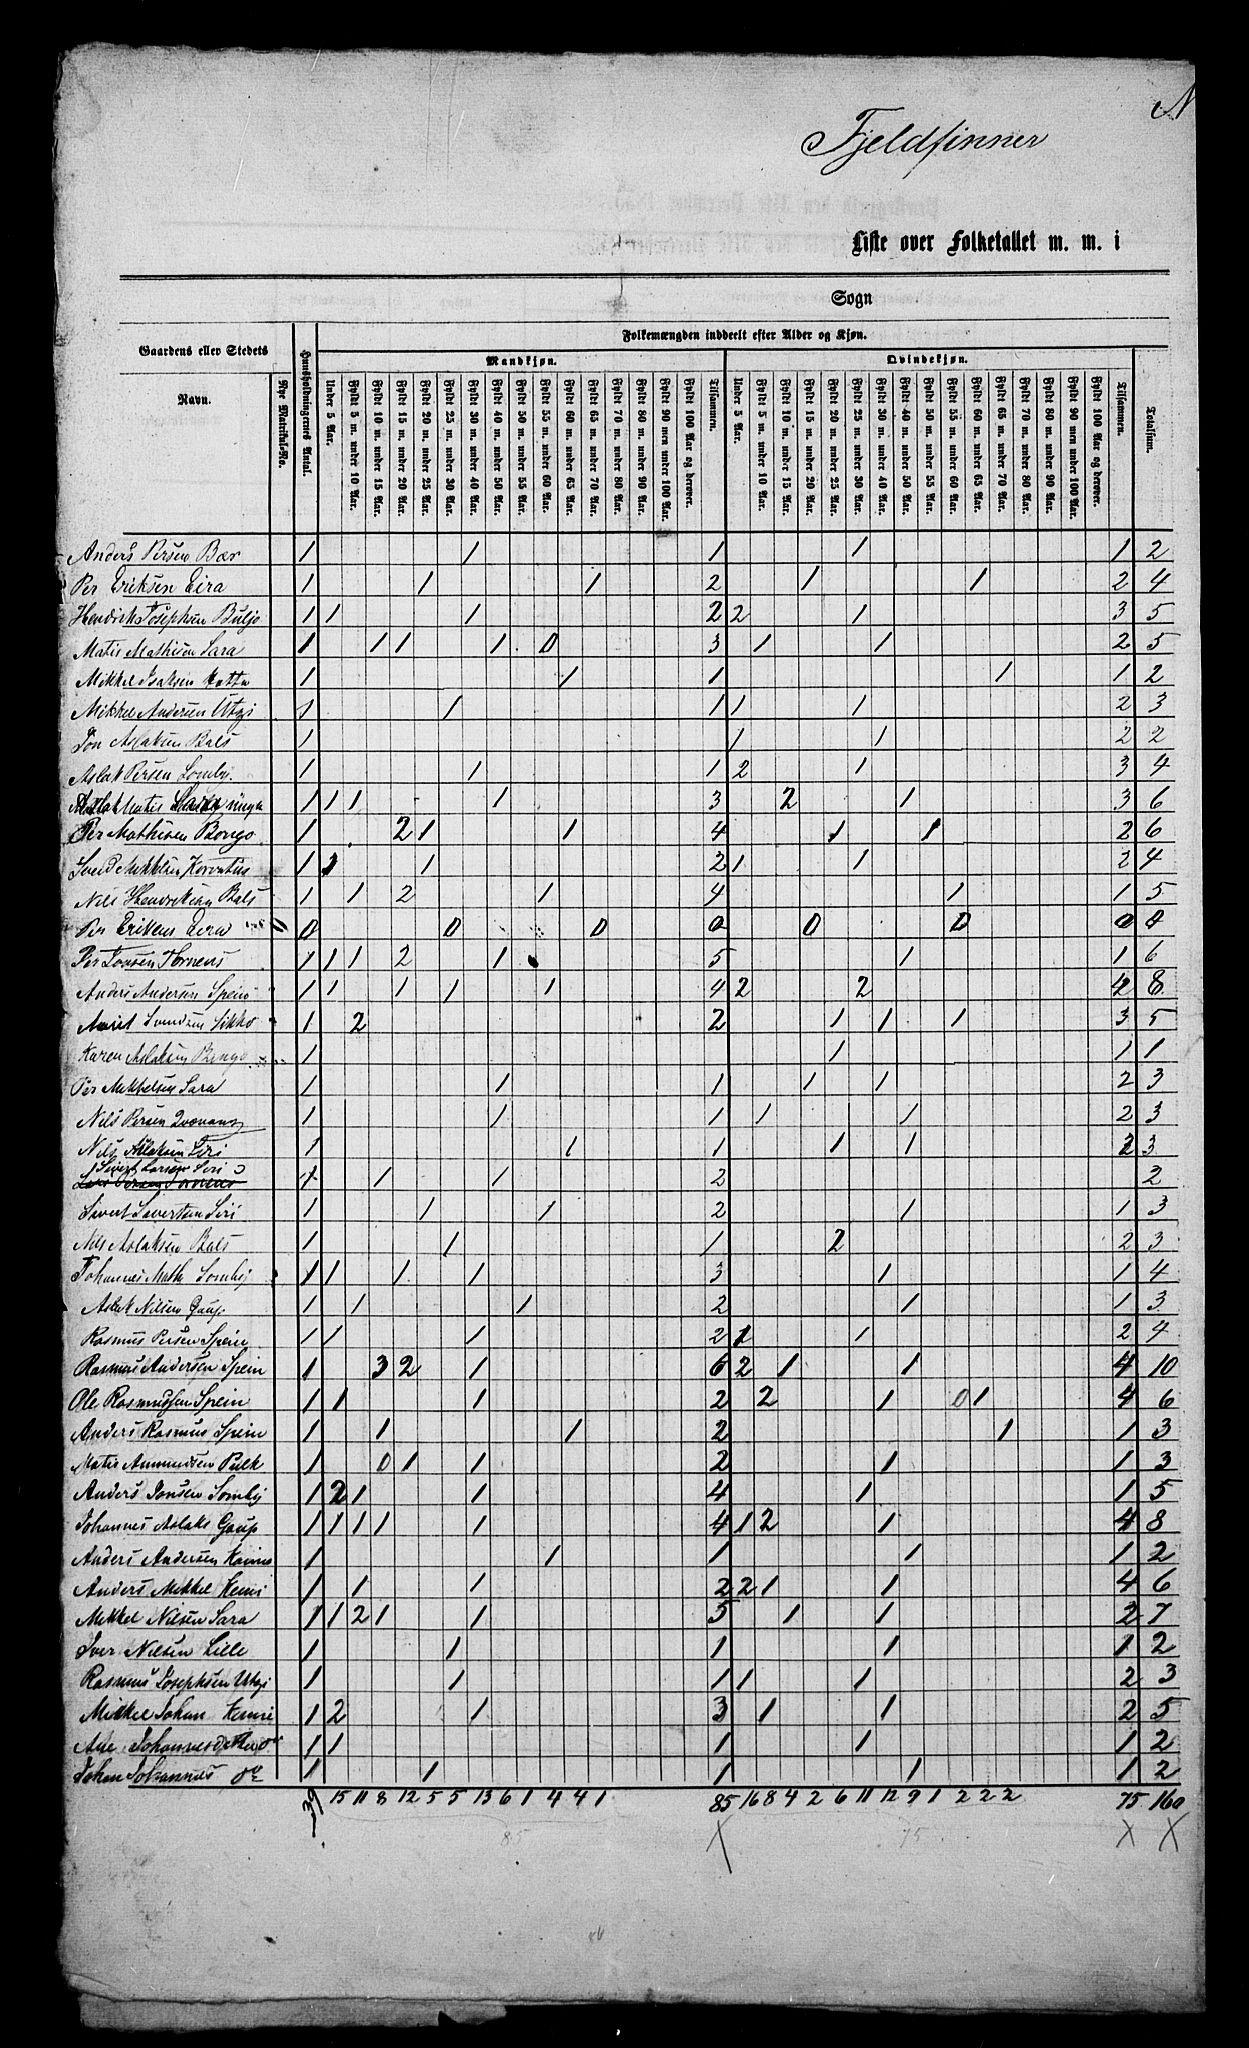 N
Fjeldfinner
Liste over Folketallet m. m. i
Sogn
Gaardens eller Stedets
Navn.
Nye Matrikul-No.
Huusholdningernes Antal.
Folkemængden inddeelt efter Alder og Kjøn.
Mandkjøn.
Qvindekjøn.
Under 5 Aar.
Fyldt 5 m. under 10 Aar.
Fyldt 10 m. under 15 Aar.
Fyldt 15 m. under 20 Aar.
Fyldt 20 m. under 25 Aar.
Fyldt 25 m. under 30 Aar.
Fyldt 30 m. under 40 Aar.
Fyldt 40 m. under 50 Aar.
Fyldt 50 m. under 55 Aar.
Fyldt 55 m. under 60 Aar.
Fyldt 60 m. under 65 Aar.
Fyldt 65 m. under 70 Aar.
Fyldt 70 m. under 80 Aar.
Fyldt 80 m. under 90 Aar.
Fyldt 90 men under 100 Aar.
Fyldt 100 Aar og derover.
Tilsammen.
Under 5 Aar.
Fyldt 5 m. under 10 Aar.
Fyldt 10 m. under 15 Aar.
Fyldt 15 m. under 20 Aar.
Fyldt 20 m. under 25 Aar.
Fyldt 25 m. under 30 Aar.
Fyldt 30 m. under 40 Aar.
Fyldt 40 m. under 50 Aar.
Fyldt 50 m. under 55 Aar.
Fyldt 55 m. under 60 Aar.
Fyldt 60 m. under 65 Aar.
Fyldt 65 m. under 70 Aar.
Fyldt 70 m. under 80 Aar.
Fyldt 80 m. under 90 Aar.
Fyldt 90 men under 100 Aar.
Fyldt 100 Aar og derover.
Tilsammen.
Totalsum.
Anders Persen Bær 1 1 1 1 1 2
Per Eriksen Eira 1 1 1 2 1 1 2 4
Hendrik Josephsen Buljo 1 1 1 2 2 1 3 5
Matis Mathisen Sara 1 1 1 1 0 3 1 1 2 5
Mikkel Isaksen Hætta 1 1 1 1 1 2
Mikkel Andersen Utsi 1 1 1 1 1 2 3
Jon Aslaksen Bals 1 1 1 2 2
Aslak Persen Somby 1 1 1 2 1 3 4
Matis 1 1 1 1 3 2 1 3 6
Per Mathisen Bongo 1 2 1 1 4 1 1 2 6
Mikkelsen 1 1 1 2 1 1 2 4
Nils Hendriksen Bals 1 1 2 1 4 1 1 5
Per Eriksen Eira 0 0 0 0 0 0 0 0 0
Per Jonsen Thornens 1 1 1 2 1 5 1 1 6
Anders Andersen Spein 1 1 1 1 1 4 2 2 4 8
Svendsen Sikko 1 2 2 1 1 1 3 5
Karen Aslaksen 1 1 1 1
Per Mikkelsen Sara 1 1 1 1 1 2 3
Nils Persen 1 1 1 1 1 2 3
Nils Aslaksen Siri 1 1 1 1 1 2 3
Sivert Larsen Siri
Lars Persen Tornens 1 1 1 2 2
Sivert Sivertsen Siri 1 1 1 2 1 1 3
Nils Aslaksen Bals 1 1 1 2 2 3
Johannes Math Somby 1 1 1 1 3 1 1 4
Aslak Nilsen Gaup 1 1 1 2 1 1 3
Rasmus Persen Spein 1 1 1 2 1 1 2 4
Rasmus Andersen Spein 1 3 2 1 6 2 1 1 4 10
Ole Rasmussen Spein 1 1 1 2 2 1 0 1 4 6
Anders Rasmus Spein 1 1 1 2 1 1 3
Matis Ammundsen Pulk 1 0 1 1 2 1 1 3
Anders Jonsen Somby 1 2 1 1 4 1 1 5
Johannes Aslaks Gaup 1 1 1 1 1 4 1 2 1 4 8
Anders Andersen 1 1 1 1 1 2
Anders Mikkel Kemi 1 1 1 2 2 1 1 4 6
Mikkel Nilsen Sara 1 1 2 1 1 5 1 1 2 7
Iver Nilsen Lille 1 1 1 1 1 2
Rasmus Josephsen Utsi 1 1 1 1 1 2 3
Mikkel Johan Kemi 1 2 1 3 1 1 2 5
Ane Johannesd 1 1 1 1 1 2
Johan Johannes do 1 1 1 1 1 2
39 15 11 8 12 5 5 13 6 1 4 4 1 85 16 8 4 2 6 11 12 9 1 2 2 2 75 160
85 75